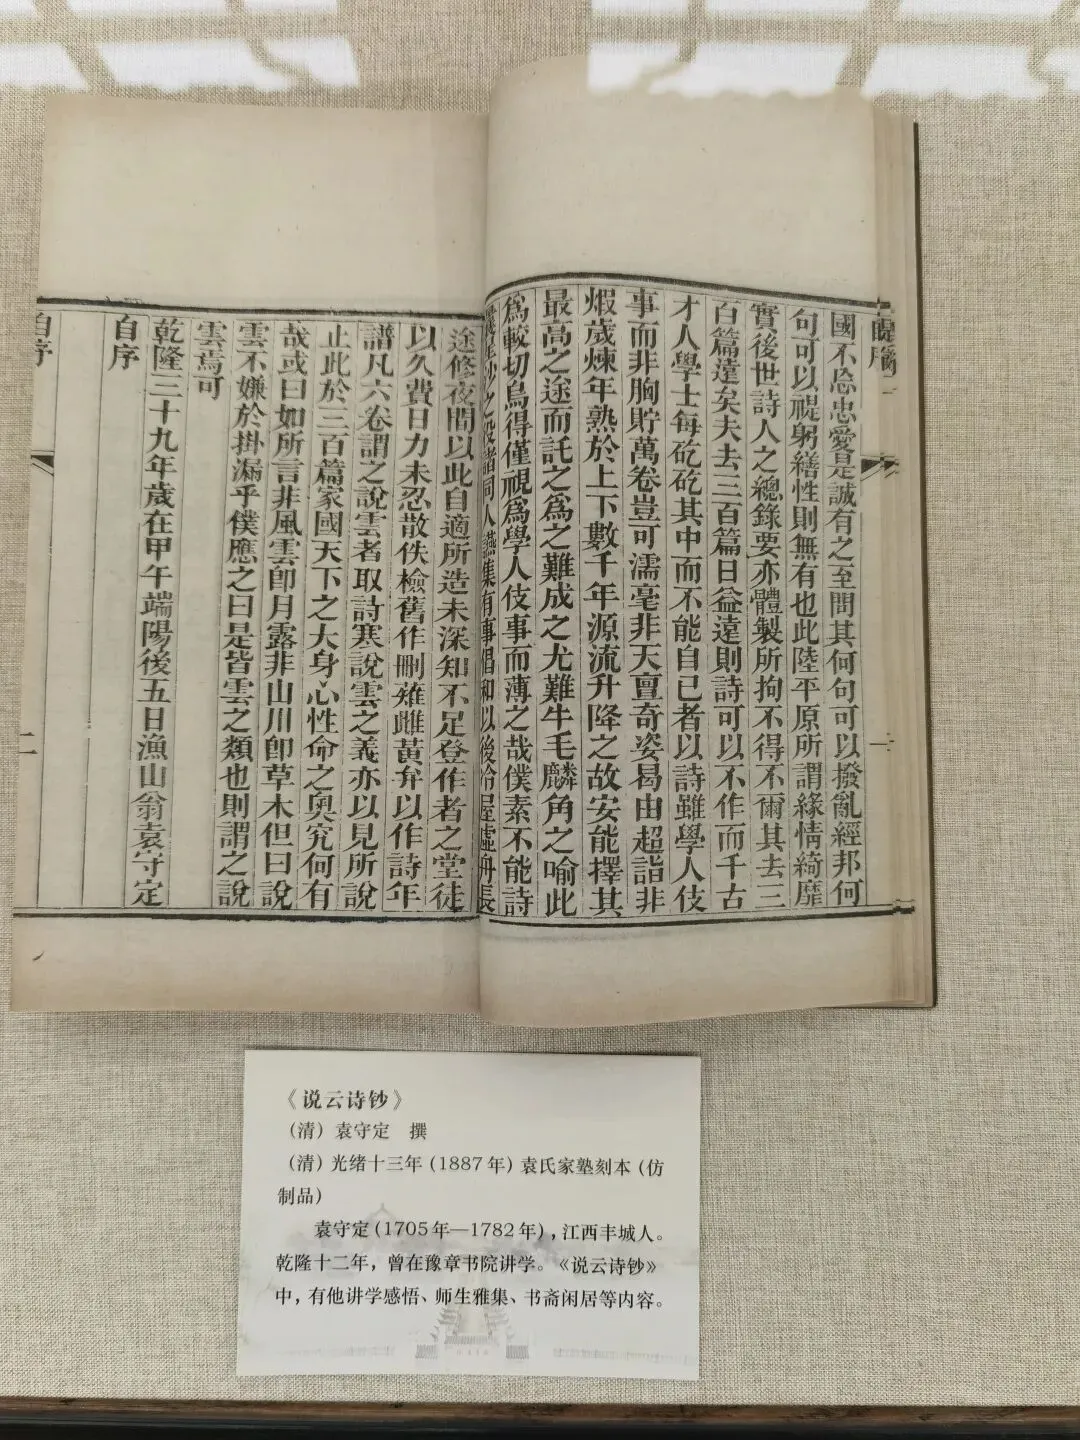 國不忘忠愛是誠有之至問其何句可以撥亂經邦何
句可以禔躬繕性則無有也此陸平原所謂緣情綺靡
實後世詩人之總錄要亦體製所拘不得不爾其去三
百篇遠矣夫去三百篇日益遠則詩可以不作而千古
才人學士每矻矻其中而不能自已者以詩雖學人伎
事而非胸貯萬卷豈可濡毫非天亶奇姿曷由超詣非
煆歲煉年熟於上下數千年源流升降之故安能擇其
最高之途而託之為之難成之尤難牛毛麟角之喻此
為較切烏得僅視為學人伎事而薄之哉僕素不能詩
之役諸同人讌集有事唱和以後冷屋虛舟長
途修夜間以此自適所造未深知不足登作者之堂徒
以久費日力未忍散佚檢舊作刪薙雌黃弁以作詩年
譜凡六卷謂之說雲者取詩寒說雲之義亦以見所說
止此於三百篇家國天下之大身心性命之奧究何有
哉或曰如所言非風雲卽月露非山川卽草木但曰說
雲不嫌於掛漏乎僕應之曰是皆雲之類也則謂之說
雲焉可
乾隆三十九年歲在甲午端陽後五日漁山翁袁守定
自序
自序
二
《说云诗钞》
（清）袁守定　撰
（清）光绪十三年（1887年）袁氏家塾刻本（仿
制品）
袁守定（1705年—1782年），江西丰城人。
乾隆十二年，曾在豫章书院讲学。《说云诗钞》
中，有他讲学感悟、师生雅集、书斋闲居等内容。